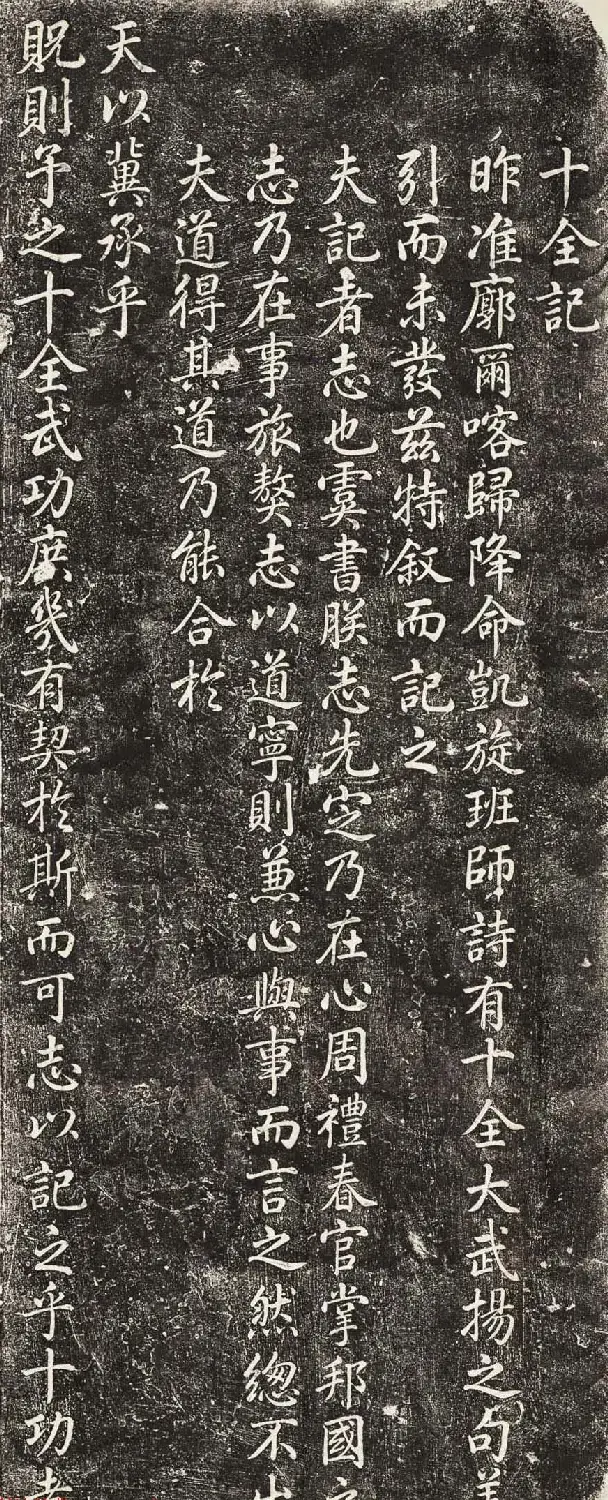 十全記
昨准廓爾喀歸降命凱旋班師詩有十全大武揚之句蓋
引而未發茲特叙而記之
夫記者志也虞書朕志先定乃在心周禮春官掌邦國之
志乃在事旅獒志以道寧則兼心與事而言之然總不出
夫道得其道乃能合於
天以冀承乎
貺則予之十全武功庶幾有契於斯而可志以記之乎十功者